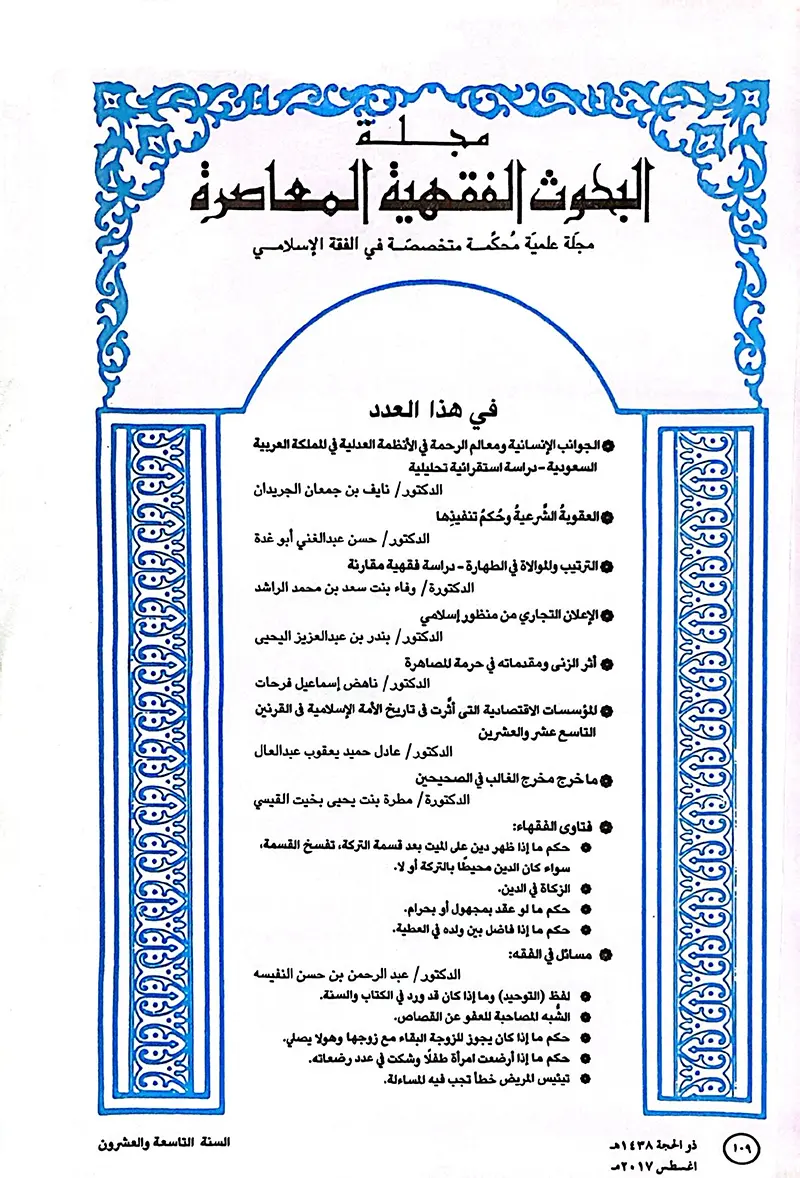 مجلة
البحوث الفقهية المعاصرة
مجلّة علميّة مُحكّمة متخصصّة في الفقة الإسلامي
في هذا العدد
الجوانب الإنسانية ومعالم الرحمة في الأنظمة العدلية في المملكة العربية
السعودية - دراسة استقرائية تحليلية
الدكتور/ نايف بن جمعان الجريدان
العقوبةُ الشَّرعيةُ وحُكمُ تنفيذِها
الدكتور/ حسن عبدالغني أبو غدة
الترتيب والموالاة في الطهارة - دراسة فقهية مقارنة
الدكتورة/ وفاء بنت سعد بن محمد الراشد
الإعلان التجاري من منظور إسلامي
الدكتور/ بندر بن عبدالعزيز اليحيى
أثر الزنى ومقدماته في حرمة المصاهرة
الدكتور/ ناهض إسماعيل فرحات
المؤسسات الاقتصادية التى أثَّرت فى تاريخ الأمة الإسلامية فى القرنين
التاسع عشر والعشرين
الدكتور/ عادل حميد يعقوب عبدالعال
ما خرج مخرج الغالب في الصحيحين
الدكتورة/ مطرة بنت يحيى بخيت القيسي
فتاوى الفقهاء:
حكم ما إذا ظهر دين على الميت بعد قسمة التركة، تفسخ القسمة،
سواء كان الدين محيطًا بالتركة أو لا.
الزكاة في الدين.
حكم ما لو عقد بمجهول أو بحرام.
حكم ما إذا فاضل بين ولده في العطية.
مسائل في الفقه:
الدكتور/ عبد الرحمن بن حسن النفيسه
لفظ (التوحيد) وما إذا كان قد ورد في الكتاب والسنة.
الشُّبه المصاحبة للعفو عن القصاص.
حكم ما إذا كان يجوز للزوجة البقاء مع زوجها وهولا يصلي.
حكم ما إذا أرضعت امرأة طفلًا وشكت في عدد رضعاته.
تيئيس المريض خطأ تجب فيه المساءلة.
١٠٩
ذو الحجة ١٤٣٨هـ
اغسطس ٢٠١٧مـ
السنة التاسعة والعشرون